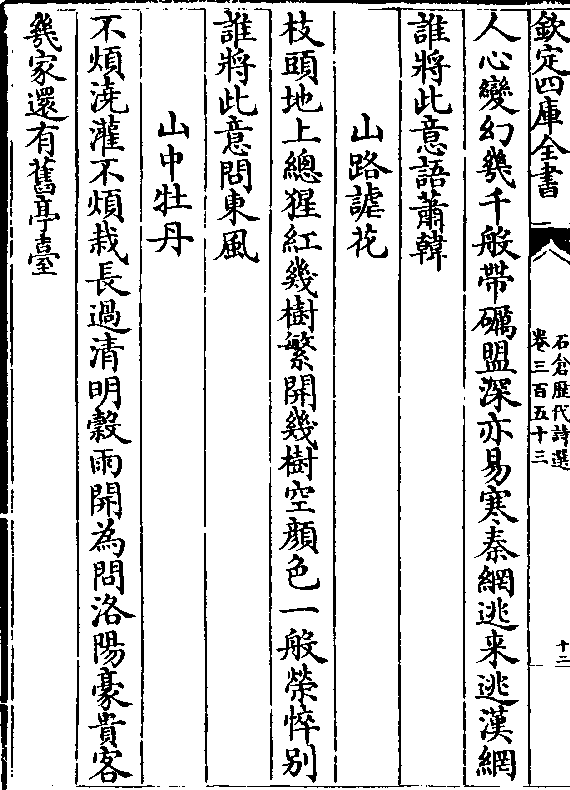 欽定四庫全書
石倉歷代詩選
卷三百五十三
十三
人心變幻幾千般帶礪盟深亦易寒秦網逃来逃漢網
誰將此意語蕭韓
山路謔花
枝頭地上總猩紅幾樹繁開幾樹空顔色一般榮悴别
誰將此意問東風
山中牡丹
不煩澆灌不煩栽長過清明穀雨開為問洛陽豪貴客
幾家還有舊亭臺